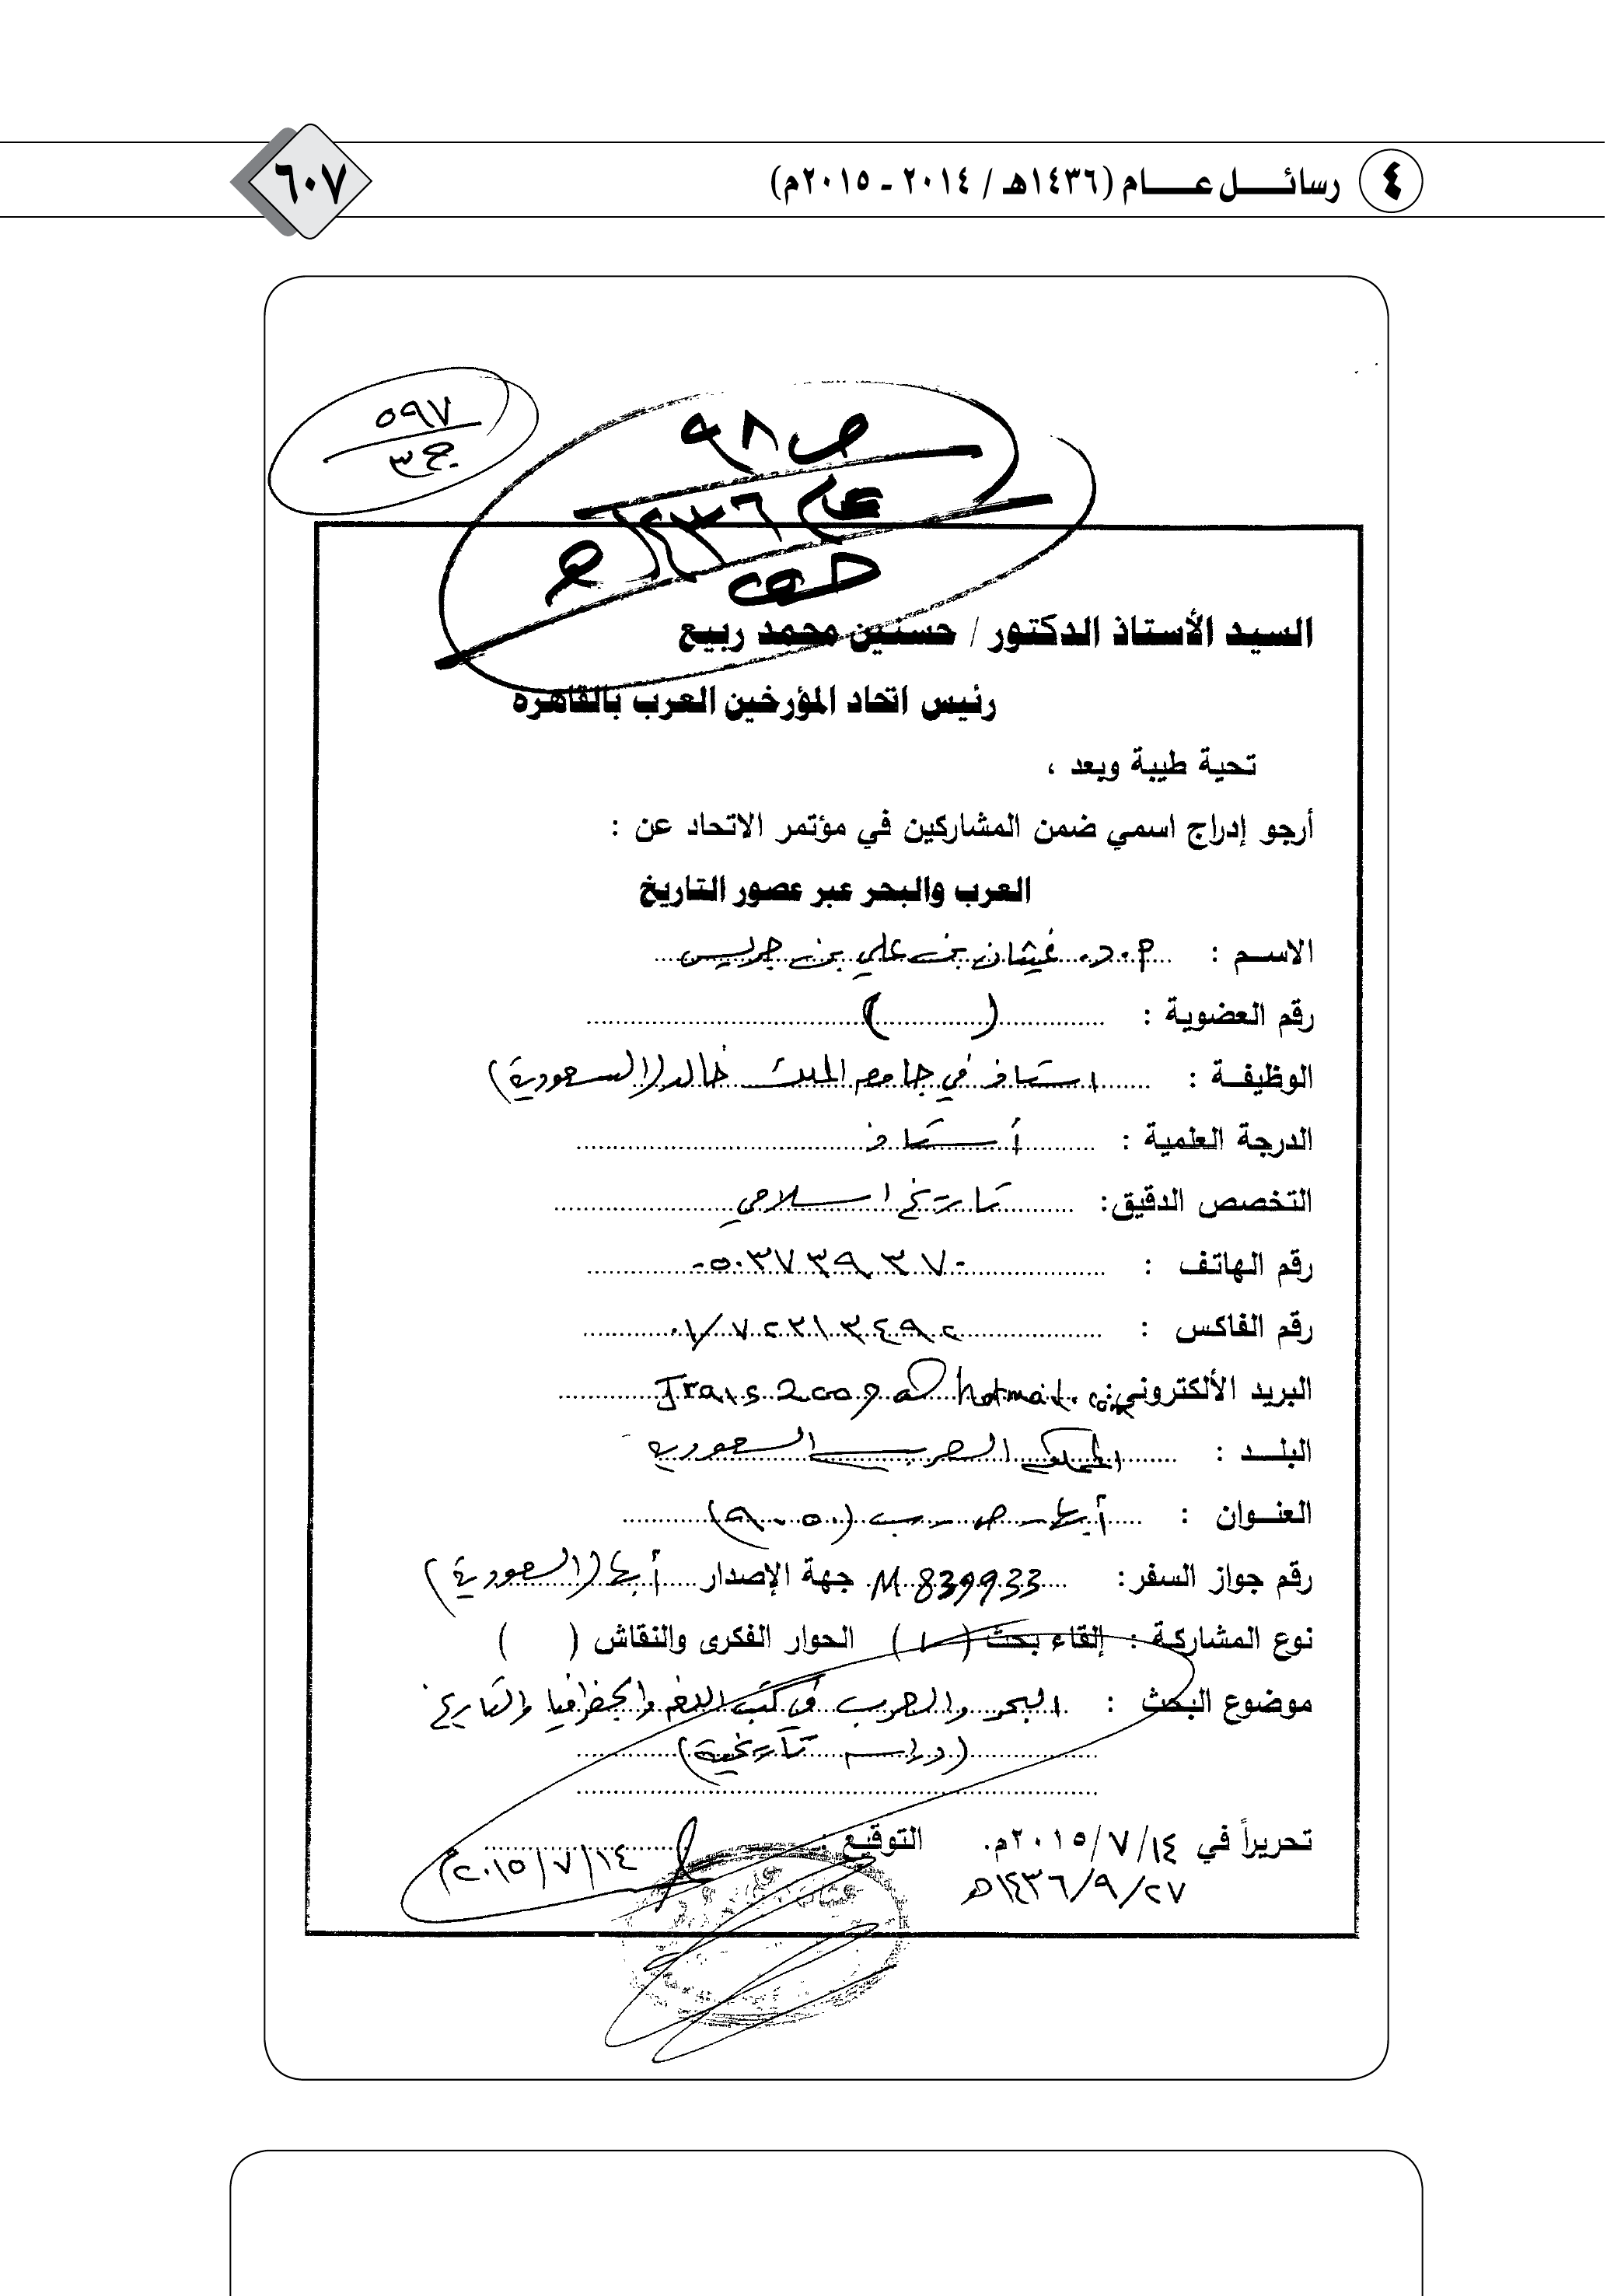 ٤ رسائــــل عــــــام (١٤٣٦هـ / ٢٠١٤ ـ ٢٠١٥م)
٦٠٧
٥٩٧
ج٣
ص ٩٨
عام ١٤٣٦هـ
السيد الأستاذ الدكتور / حسنين محمد ربيع
رئيس اتحاد المؤرخين العرب بالقاهره
تحية طيبة وبعد ،
أرجو إدراج اسمي ضمن المشاركين في مؤتمر الاتحاد عن :
العرب والبحر عبر عصور التاريخ
الاســم : أ.د. غيثان بن علي بن جريس
رقم العضوية : ( )
الوظيفــة : استاذ في جامعه الملك خالد (السعودية)
الدرجة العلمية : أستاذ
التخصص الدقيق: تاريخ اسلامي
رقم الهاتف : ٠٥٠٣٧٣٩٣٧٠
رقم الفاكس : ٠١/٧٢٣١٣٤٩٢
البريد الألكتروني: Jrais2009@hotmail.com
البلــــد : المملكه العربيه السعوديه
العنـــوان : أبها - ص . ب (٩٠٥٠)
رقم جواز السفر: M 839933 جهة الإصدار أبها (السعودية)
نوع المشاركـة : إلقاء بحث ( ١ ) الحوار الفكرى والنقاش ( )
موضوع البحث : البحر والعرب في كتب اللغه والجغرافيا والتاريخ
(دراسه تاريخية)
تحريراً في ١٤/ ٧/ ٢٠١٥م. التوقيع : ١٤/ ٧/ ٢٠١٥م
٢٧/ ٩/ ١٤٣٦هـ